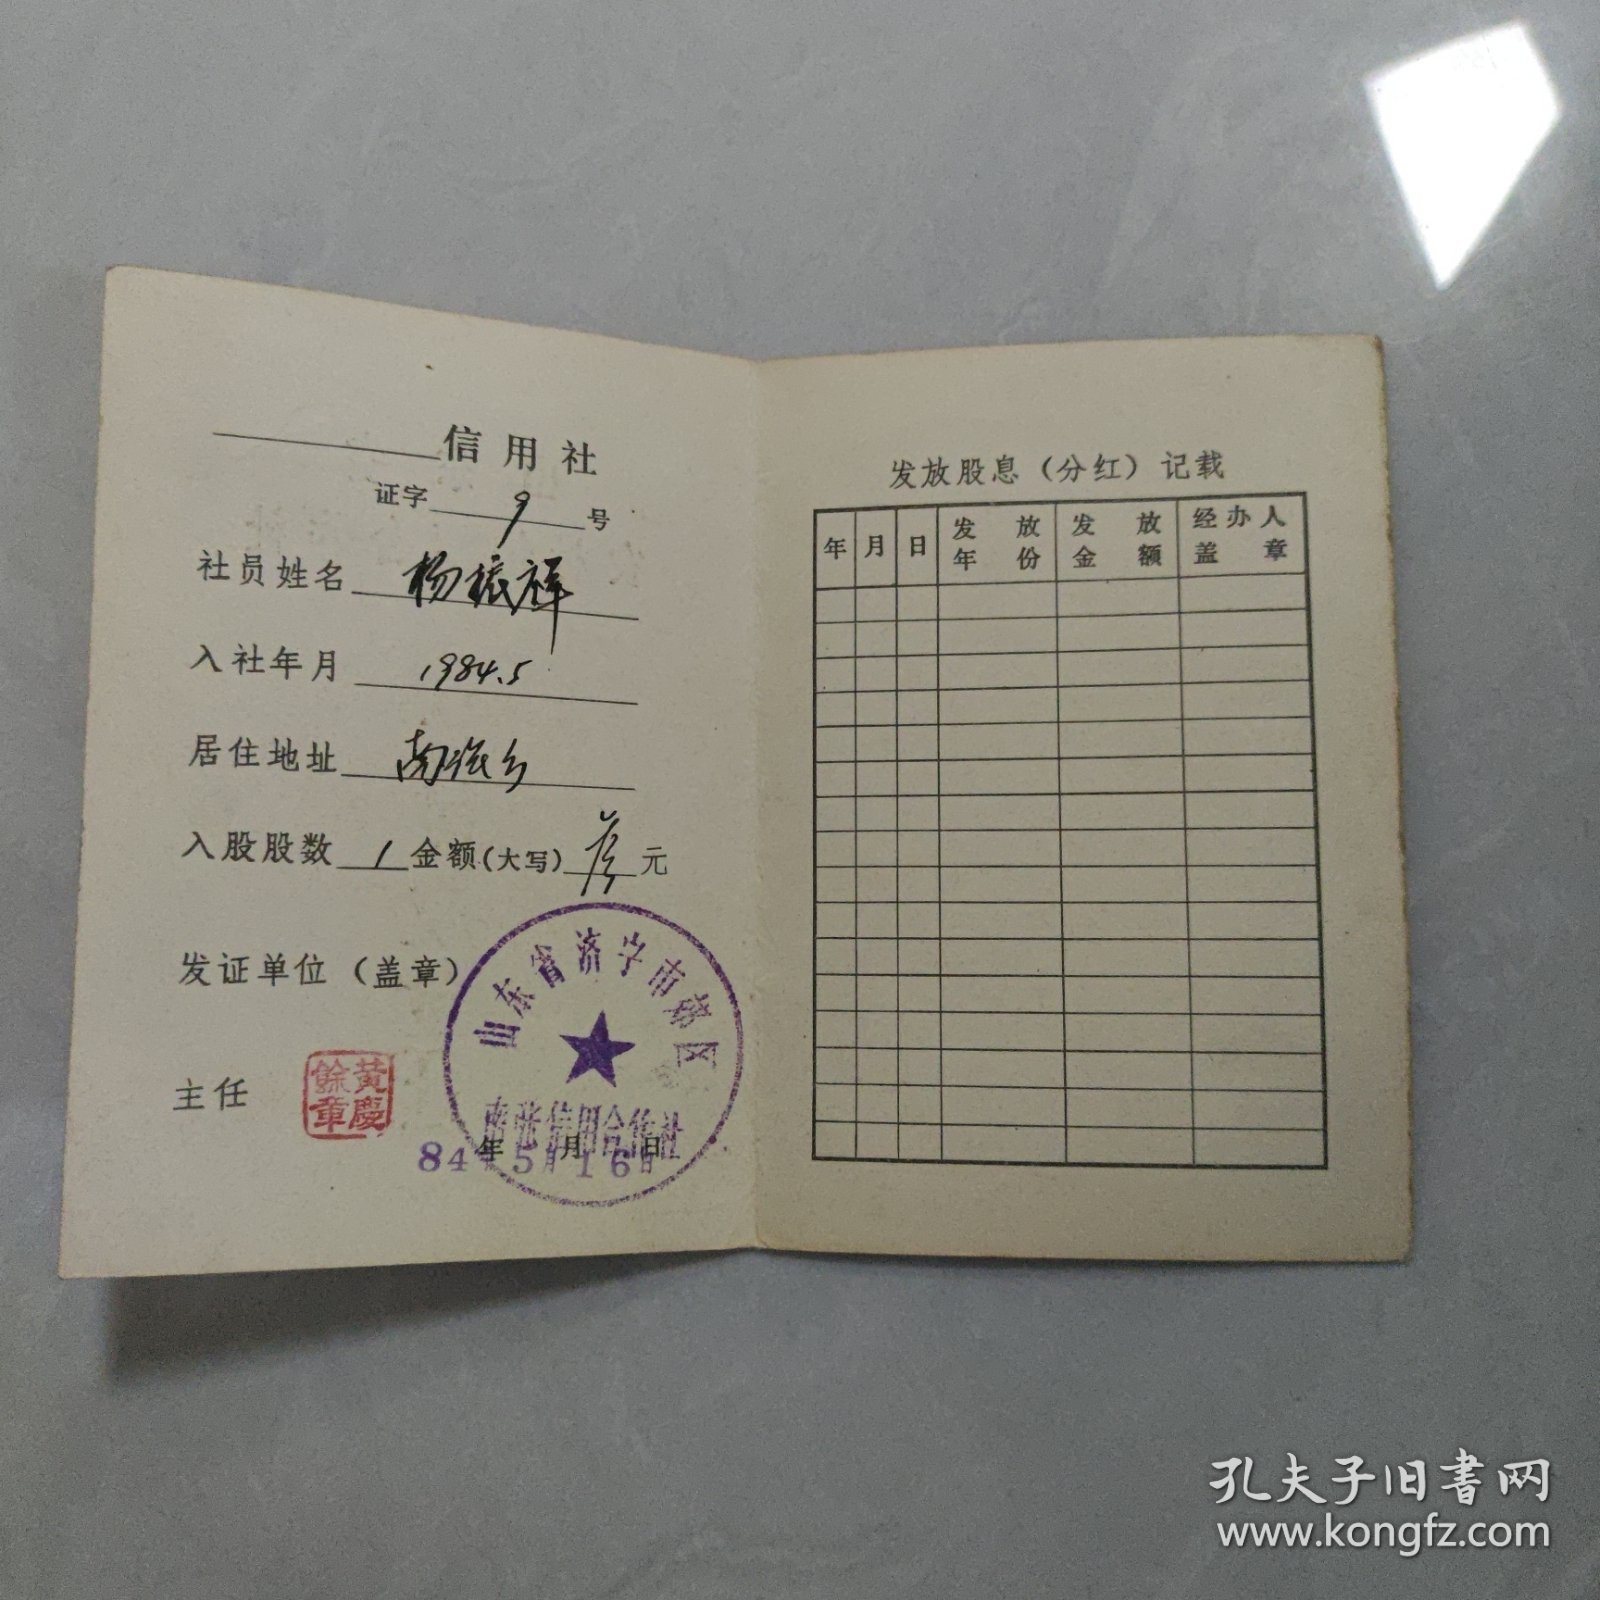 信用社
证字 9 号
社员姓名 杨振祥
入社年月 1984.5
居住地址 南张乡
入股股数 1 金额(大写) 元
发证单位（盖章）
山东省济宁市郊区
南张信用合作社
主任 黄慶餘章
年 月 日
84年5月16日
发放股息（分红）记载
年 月 日 发放年份 发放金额 经办人盖章
孔夫子旧书网
www.kongfz.com